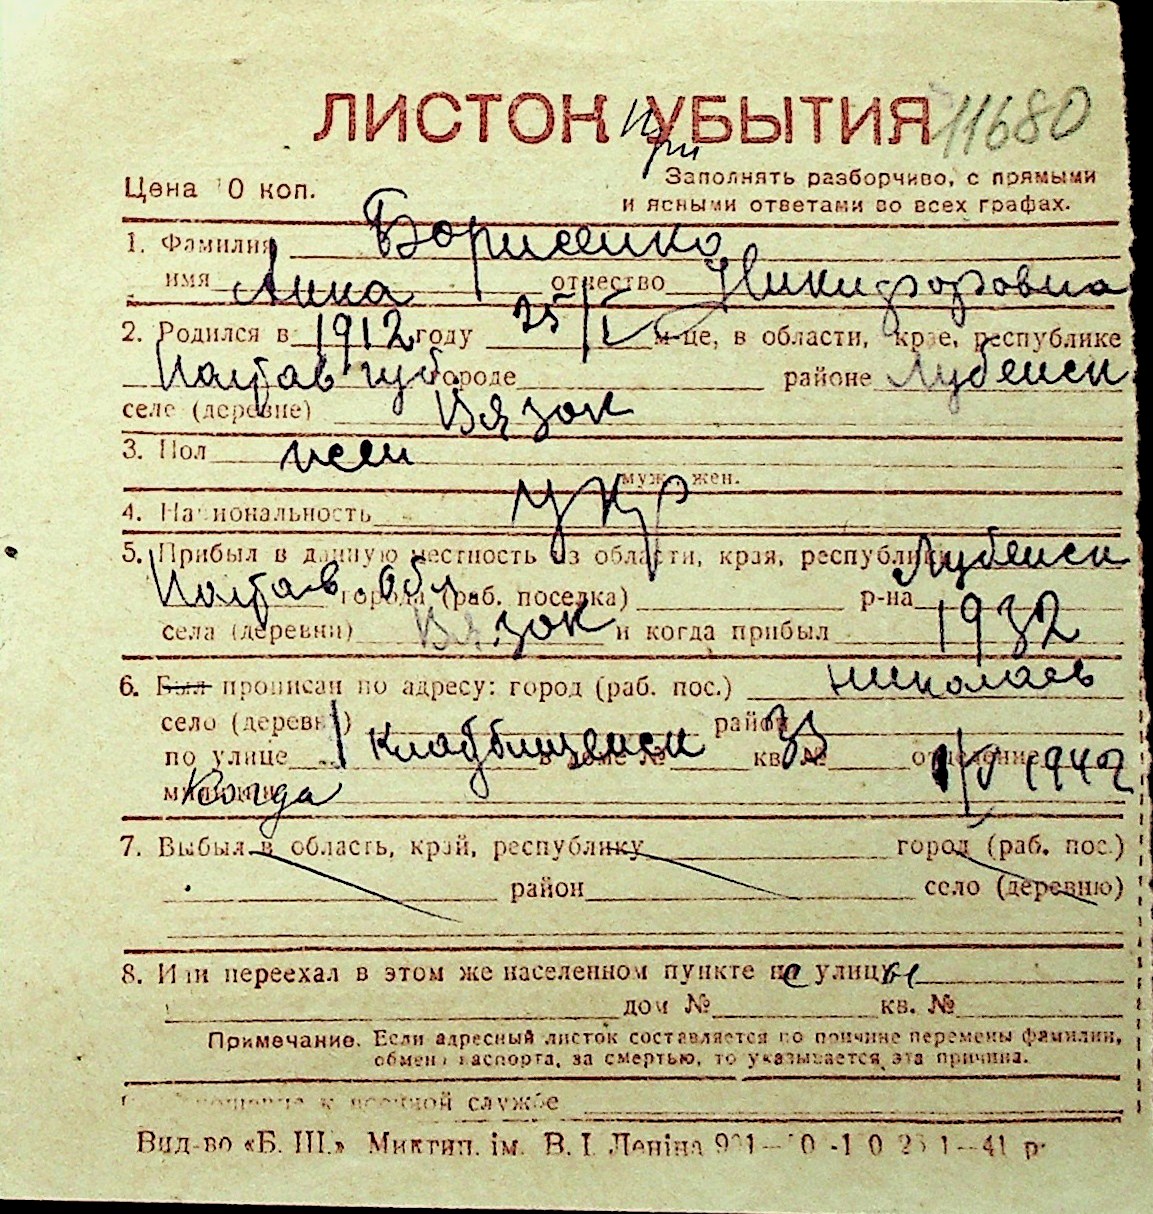 ЛИСТОК УБЫТИЯ 11680
При
Цена 0 коп.
Заполнять разборчиво, с прямыми
и ясными ответами во всех графах.
1. Фамилия Борисенко
имя Анна отчество Никифоровна
2. Родился в 1912 году 25/I м-це, в области, крае, республике
Полтав губ. городе районе Лубенск
селе (деревне) Вязок
3. Пол жен
муж., жен.
4. Национальность укр
5. Прибыл в данную местность из области, края, республики Лубенск
Полтав. обл. города (раб. поселка) р-на
села (деревни) Вязок и когда прибыл 1932
6. Был прописан по адресу: город (раб. пос.) Николаев
село (деревня) район
по улице 1 Кладбищенск в доме № 33 кв. № отделение 1/V 1942
милиции
7. Выбыл в область, край, республику город (раб. пос.)
район село (деревню)
8. Или переехал в этом же населенном пункте на улицу
дом № кв. №
Примечание. Если адресный листок составляется по причине перемены фамилии,
обмена паспорта, за смертью, то указывается эта причина.
к военной службе
Вид-во «Б. Ш.» Миктип. ім. В. І. Леніна